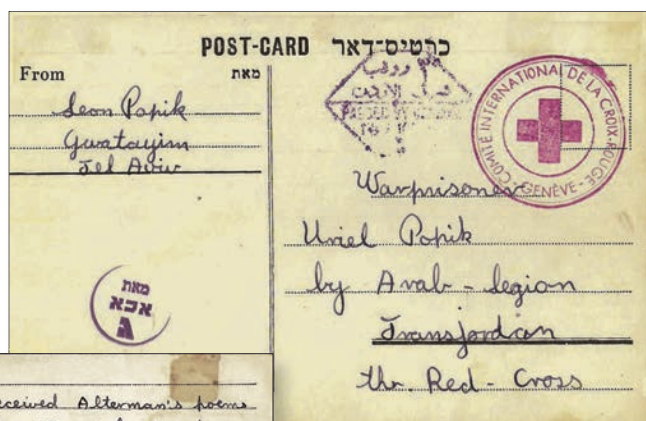 POST-CARD כרטיס־דאר
From מאת
Leon Popik
Gwatayim
Tel Aviv
COMITÉ INTERNATIONAL DE LA CROIX-ROUGE - GENÈVE -
PASSED BY
Warprisoner
Uriel Popik
by Arab - Legion
Transjordan
thr. Red - Cross
מאת
אכא
received Alterman's poems